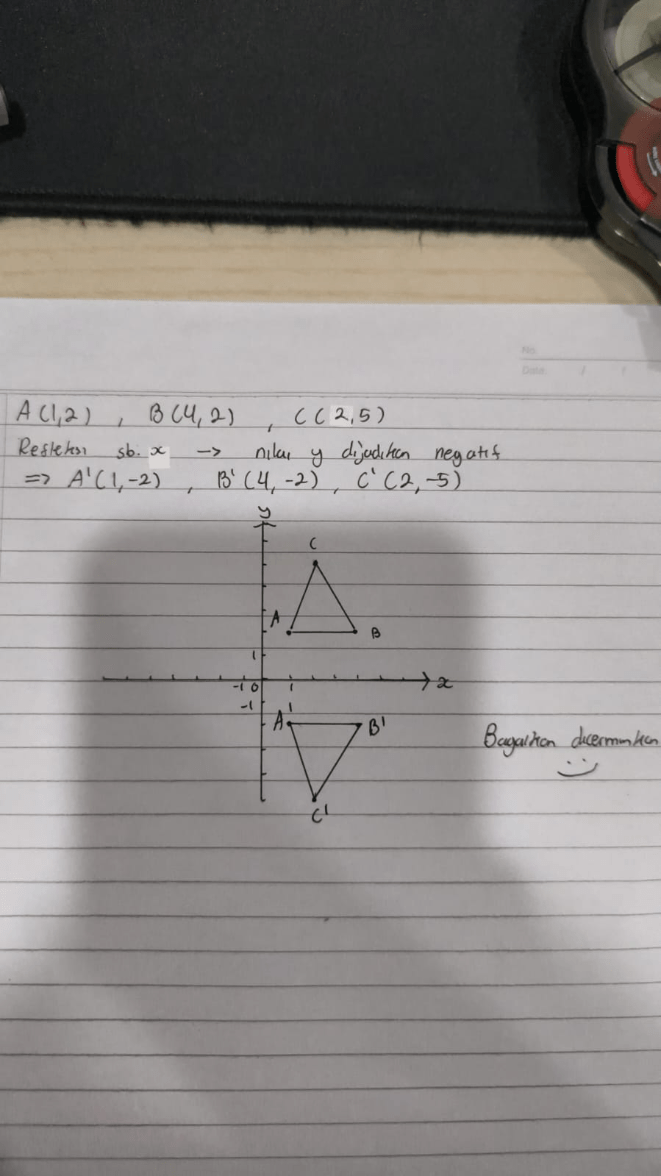 No.
Date / /
A(1,2) , B(4,2) , C(2,5)
Refleksi sb. x -> nilai y dijadikan negatif
=> A'(1,-2) , B'(4,-2) , C'(2,-5)
y
C
A B
1
-1 0 1 x
-1
A' B'
Bagaikan dicerminkan
C'